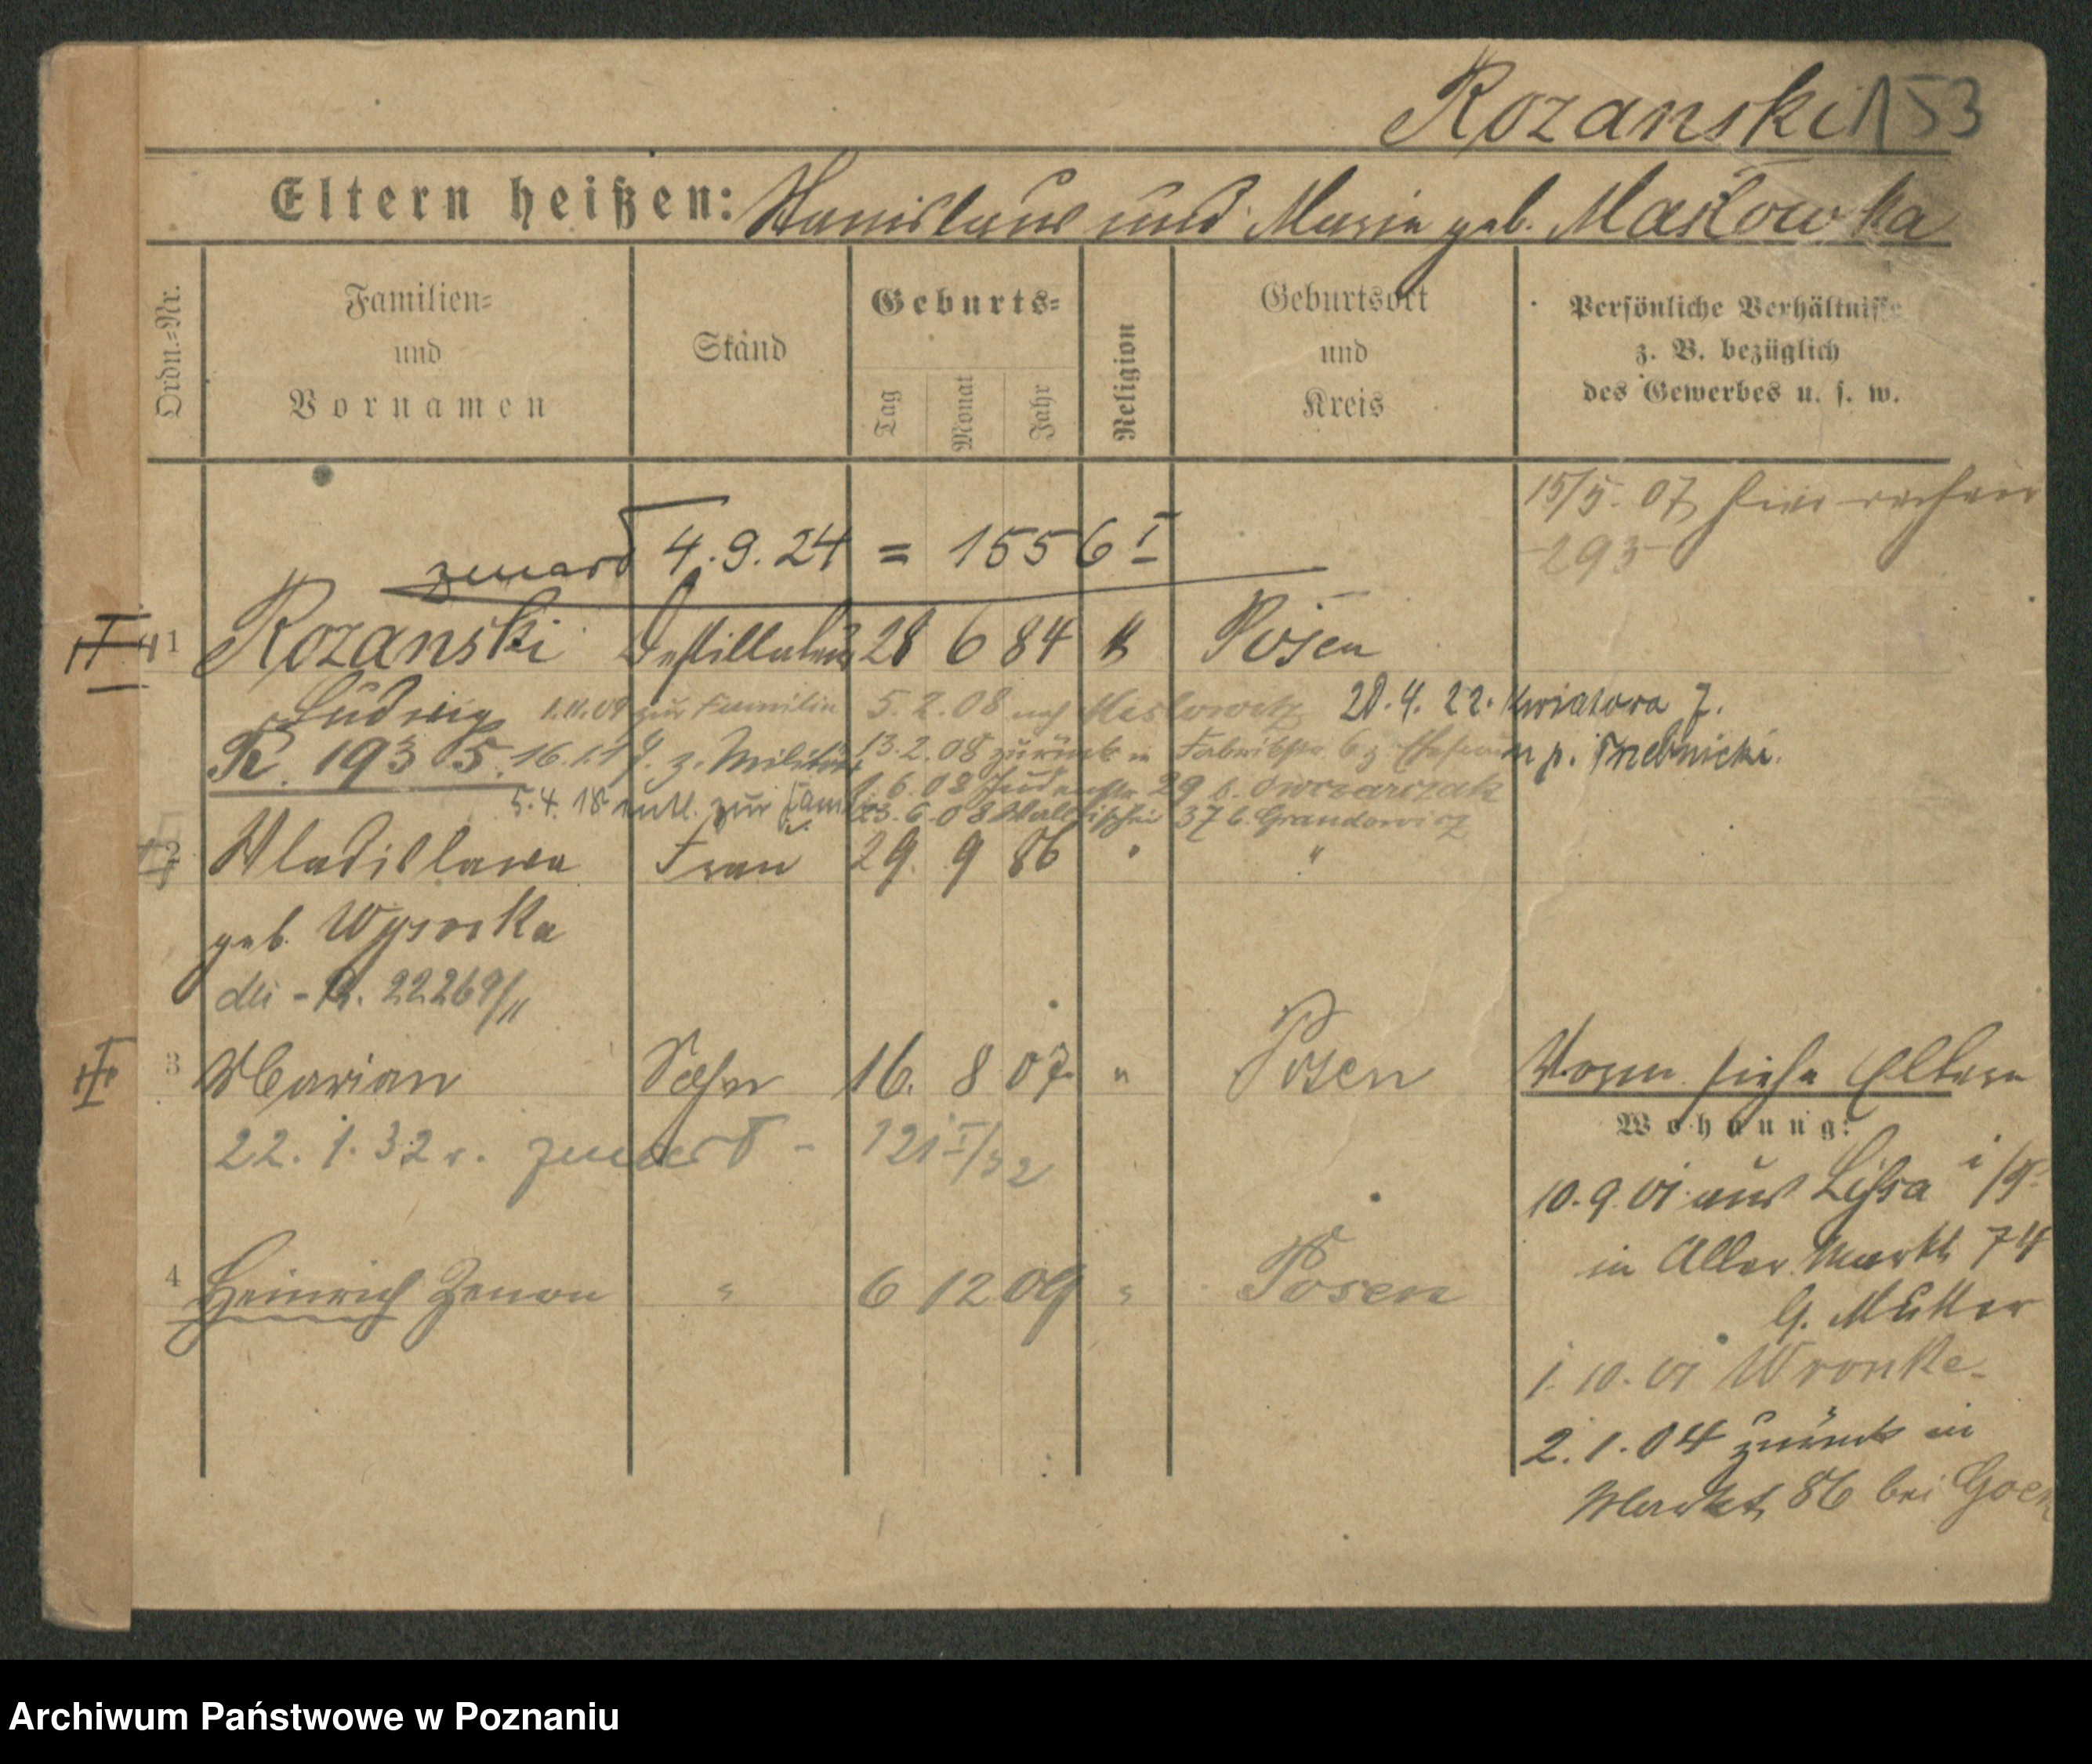 Rozanski 153
Eltern heißen: Stanislaus und Marie geb. Masłowska
Ordn.-Nr.
Familien-
und
Vornamen
Stand
Geburts-
Tag
Monat
Jahr
Religion
Geburtsort
und
Kreis
Persönliche Verhältnisse
z. B. bezüglich
des Gewerbes u. s. w.
15/5. 07
293
zmarł 4.9.24 = 1556 I
1 Rozanski Destillateur 28 6 84 K Posen
Ludwig 1.11.09 zur Familie 5.2.08 nach 28.4.22. Kwiatowa 7.
K. 19305. z. Militär 13.2.08 zurück in m p. Trebnicki.
6.08 Judenstr. 29 b. Owczarczak
5.4.18 entl. zur Familie 23.6.08 Wallischei 37 b. Grandowicz
2 Wladislawa Frau 29. 9 86 " "
geb. Wysocka
22269/11
3 Marian Sohn 16. 8 07 " Posen Vorm siehe Eltern
22.1.32 r. zmarł - 121 I/32
Wohnung:
10.9.01 aus Lissa i/P.
in Alter Markt 74
G. Müller
4 Heinrich Zenon " 6 12 09 " Posen
1.10.01 Wronke
2.1.04 zurück in
Markt 86 bei
Archiwum Państwowe w Poznaniu